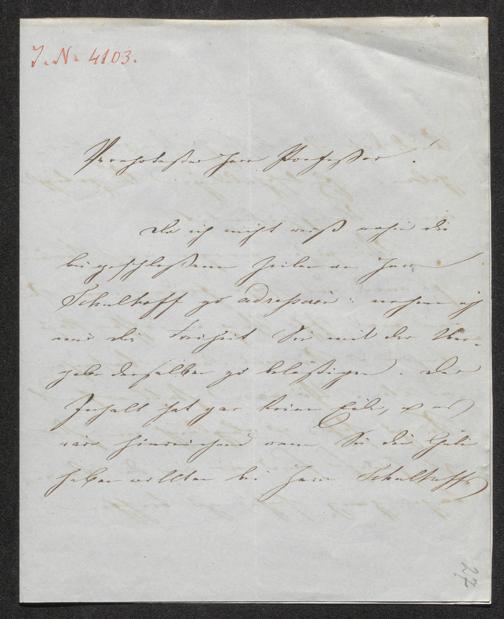 J. N. 4103.
Verehrtester Herr Professor!
Da ich nicht weiß wohin die
beigeschlossenen Zeilen an Herrn
Schulhoff zu adressiren: nehme ich
mir die Freiheit Sie mit der Über-
gabe derselben zu belästigen. Der
Inhalt hat gar keine Eile, u es
wäre hinreichend wenn Sie die Güte
haben wollten bei Herrn Schulhoffs
27